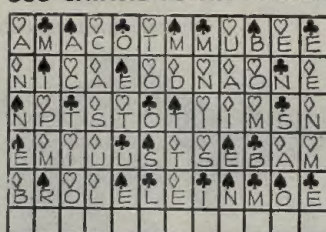 A M A C O T M M U B E E
N C A E O D N A O N E
N P T S T O T I I M S N
E M I U U S T S E B A M
B R O L E L E I N M O E